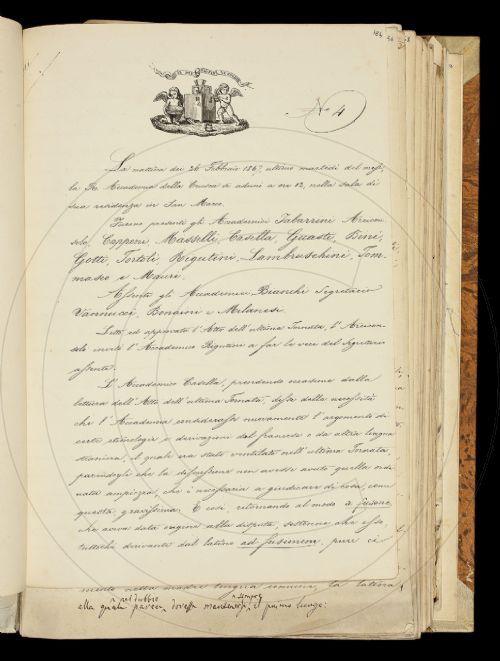 184
No 4
La mattina dei 26 Febbraio 1867, ultimo martedì del mese,
la R. Accademia della Crusca si adunò a ore 12, nella sala di
sua residenza in San Marco.
Furono presenti gli Accademici Tabarrini Arcicon-
solo, Capponi, Masselli, Casella, Guasti, Bini,
Gotti, Tortoli, Rigutini, Lambruschini, Tom-
maseo e Mauri.
Assenti gli Accademici Bianchi Segretario
Vannucci, Bonaini e Milanesi.
Letto ed approvato l'Atto dell'ultima Tornata, l'Arcicon-
solo invitò l'Accademico Rigutini a far le veci del Segretario
assente.
L'Accademico Casella, prendendo occasione dalla
lettura dell'Atto dell'ultima Tornata, disse della necessità
che l'Accademia considerasse nuovamente l'argomento di
certe etimologie e derivazioni dal francese o da altra lingua
straniera, il quale era stato ventilato nell'ultima Tornata,
parendogli che la discussione non avesse avuto quella ordi-
nata ampiezza, che è necessaria a giudicare di cosa, come
questa, gravissima. E così, ritornando al modo a fusone,
che aveva data origine alla disputa, sostenne che esso,
tuttochè derivante dal latino ad fusionem, pure ci
mente nella madre lingua comune, la latina
nel dubbio sempre
alla quale pareva doversi mantenere il primo luogo: